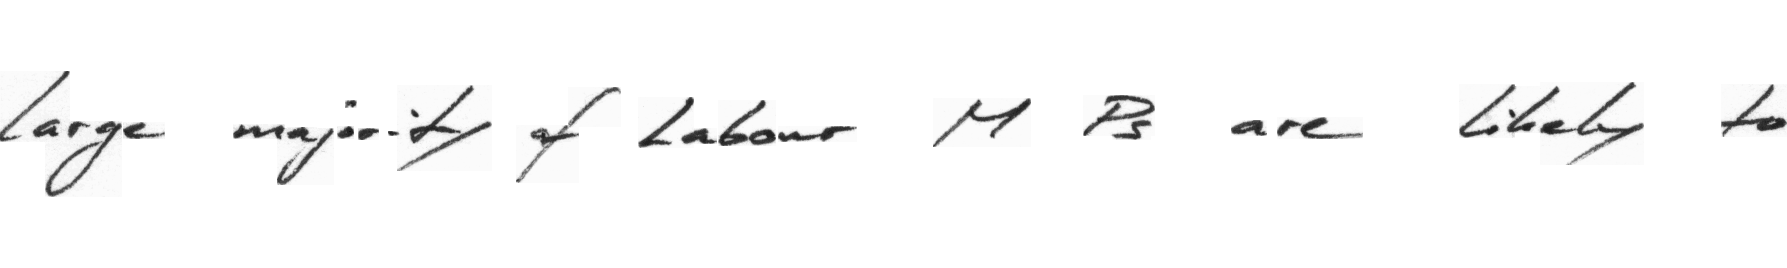 large majority of Labour M Ps are likely to